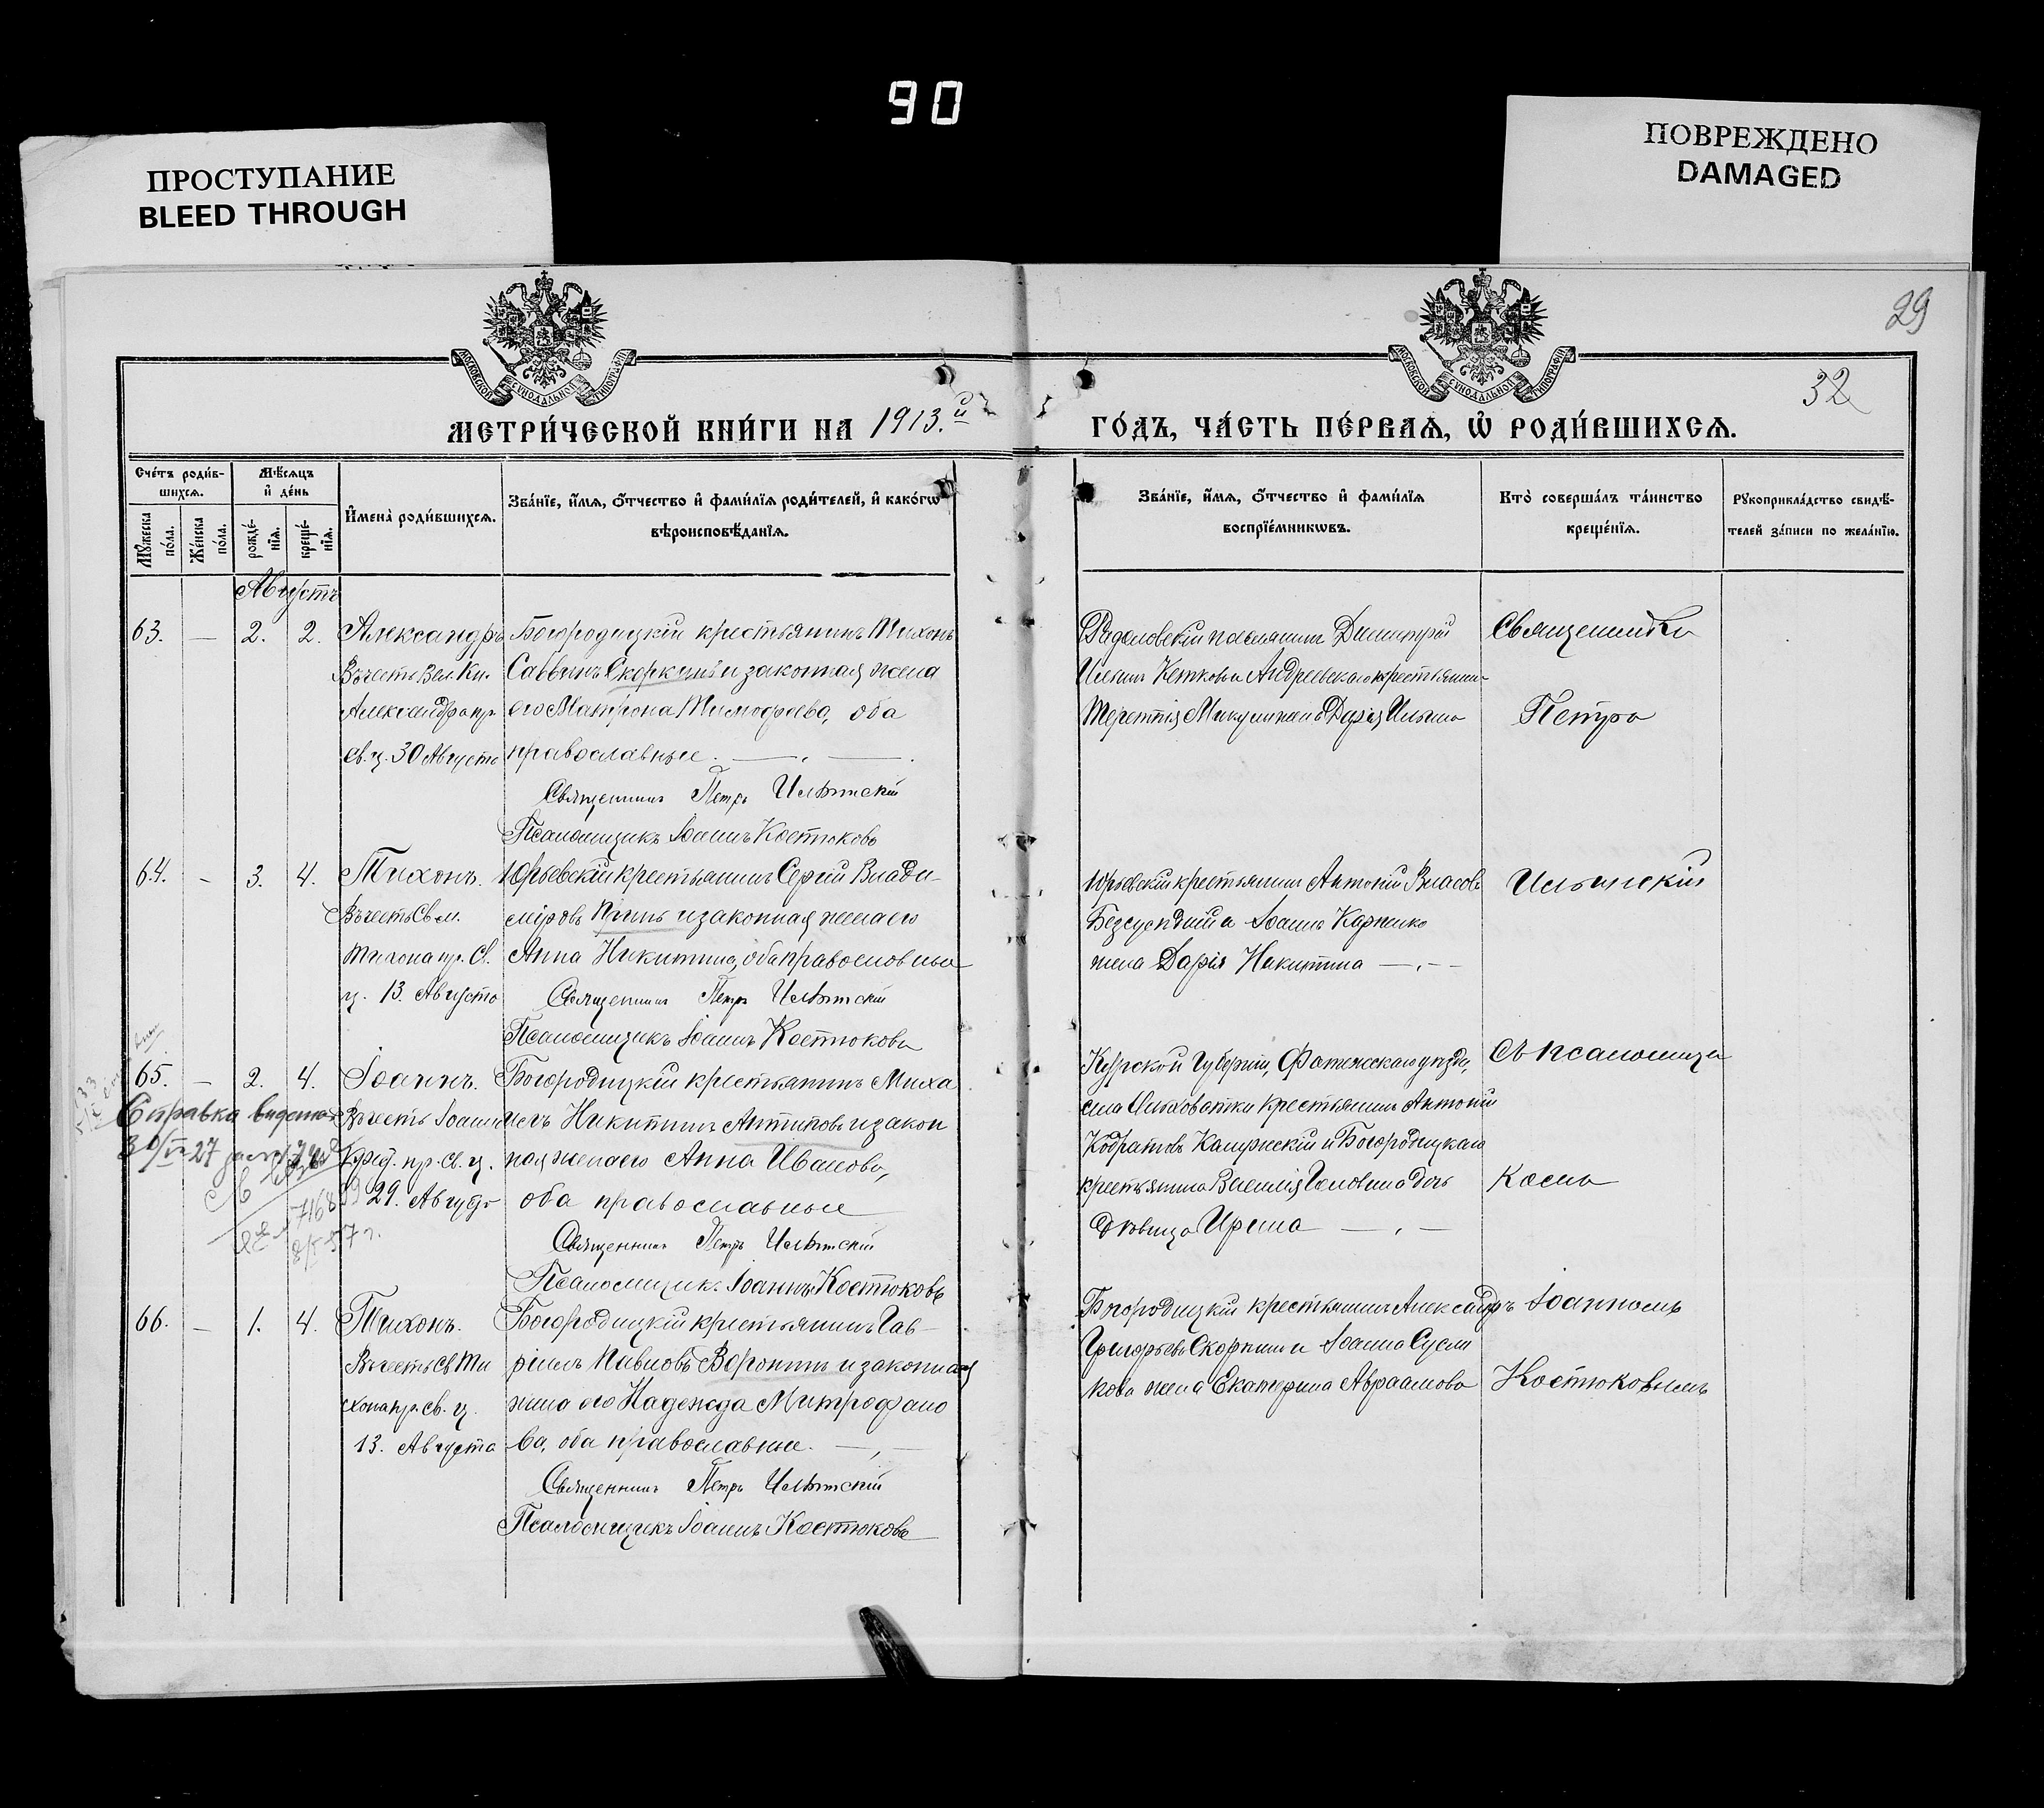 90
ПРОСТУПАНИЕ
BLEED THROUGH
ПОВРЕЖДЕНО
DAMAGED
29
32
МОСКОВСКОЙ СѴНОДАЛЬНОЙ ТИПОГРАФІИ
МОСКОВСКОЙ СѴНОДАЛЬНОЙ ТИПОГРАФІИ
МЕТРИ́ЧЕСКОЙ КНИ́ГИ НА 1913.й
ГО́ДЪ, ЧА́СТЬ ПЕ́РВАѦ, Ѡ҆ РОДИ́ВШИХСѦ.
Сче́тъ роди́в-
шихсѧ.
Мѣ́сѧцъ
и҆ де́нь
Мꙋ́жеска по́ла.
Же́нска по́ла.
рожде́-
нїѧ.
креще́-
нїѧ.
И҆мена̀ роди́вшихсѧ.
Зва́нїе, и҆́мѧ, ѻ҆́тчество и҆ фами́лїѧ роди́телей, и҆ како́гѡ
вѣроисповѣ́данїѧ.
Зва́нїе, и҆́мѧ, ѻ҆́тчество и҆ фами́лїѧ
воспрїе́мникѡвъ.
Кто̀ соверша́лъ та́инство
креще́нїѧ.
Рꙋкоприкла́дство свидѣ́-
телей за́писи по жела́нїю.
Августъ
63. — 2. 2. Александръ
Въ честь Вел. Кн.
Александра пр.
св. ц. 30 Августа
Богородицкій крестьянинъ Тихонъ
Саввинъ Скоркинъ и законная жена
его Матрона Тимофеева, оба
православные.
Священникъ Петръ Ильинскій
Псаломщикъ Іоаннъ Костюковъ
поселянинъ Димитрій
Ильинъ и Андреевскаго крестьянин-
Терентія жена Дарія Ильина
Священники
Петръ
64. — 3. 4. Тихонъ.
Въ честь Св. м.
Тихона пр. С.
ц. 13. Августа
Юрьевскій крестьянинъ Сергій Влади-
міровъ и законная жена его
Анна Никитина, оба православные
Священникъ Петръ Ильинскій
Псаломщикъ Іоаннъ Костюковъ
Юрьевскій крестьянинъ Антоній Власовъ
и Іоанна
жена Дарія Никитина
Ильинскій
65. — 2. 4. Іоаннъ.
Въ честь Іоанна
Крест. пр. св. ц.
29. Августа
Справка выдана
Богородицкій крестьянинъ Миха
илъ Никитинъ Антиповъ и закон
ная жена его Анна Иванова,
оба православные
Священникъ Петръ Ильинскій
Псаломщикъ Іоаннъ Костюковъ
Курской Губерніи, Фатежскаго уезда,
села крестьянинъ Антоній
и Богородицкаго
крестьянина Василія дочь
девица Ирина
Съ псаломщи
комъ
66. — 1. 4. Тихонъ.
Въ честь Св. Ти
хона пр. св. ц.
13. Августа
Богородицкій крестьянинъ Гав-
ріилъ Павловъ Воронинъ и законная
жена его Надежда Митрофано
ва, оба православные.
Священникъ Петръ Ильинскій
Псаломщикъ Іоаннъ Костюковъ
Богородицкій крестьянинъ Александръ
Григорьевъ Скоркинъ и Іоанна Сусли
кова жена Екатерина Авраамова
Іоанномъ
Костюковымъ